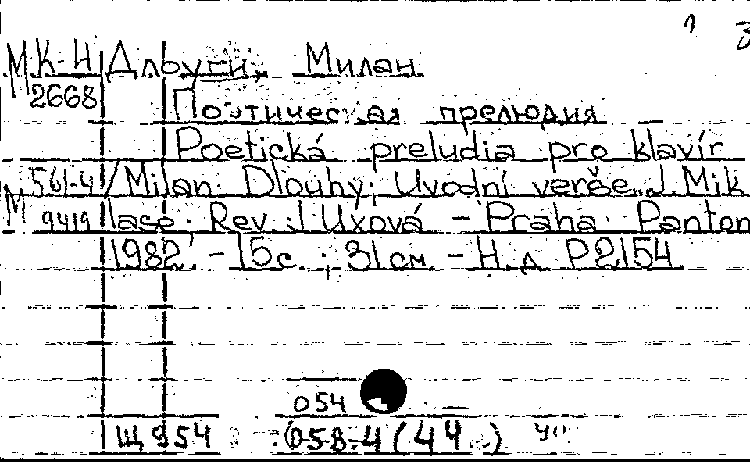 МК-Н Длоуги, Милан
2668 Поэтическая прелюдия
Poetická preludia pro klavír
561-4 /Milan Dlouhý; Úvodní verše J. Mik
М 9419 lase; Rev. J. Uxová - Praha: Panton
1982 - 15с.; 31см. - Н.д. P2154
054
Щ954 058-4(44